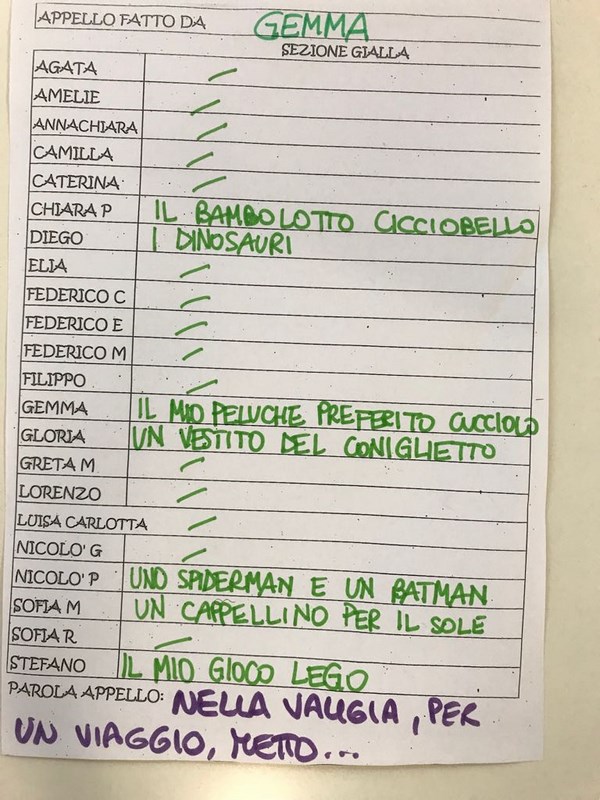 APPELLO FATTO DA GEMMA
SEZIONE GIALLA
AGATA
AMELIE
ANNACHIARA
CAMILLA
CATERINA
CHIARA P IL BAMBOLOTTO CICCIOBELLO
DIEGO I DINOSAURI
ELIA
FEDERICO C
FEDERICO E
FEDERICO M
FILIPPO
GEMMA IL MIO PELUCHE PREFERITO CUCCIOLO
GLORIA UN VESTITO DEL CONIGLIETTO
GRETA M
LORENZO
LUISA CARLOTTA
NICOLO' G
NICOLO' P UNO SPIDERMAN E UN BATMAN
SOFIA M UN CAPPELLINO PER IL SOLE
SOFIA R
STEFANO IL MIO GIOCO LEGO
PAROLA APPELLO: NELLA VALIGIA, PER
UN VIAGGIO, METTO...